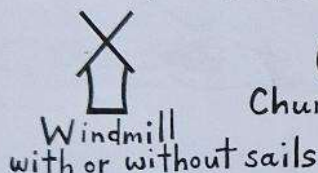 Windmill
with or without sails